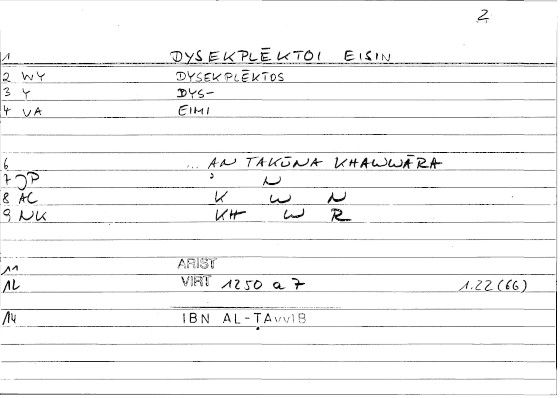 2
1 DYSEKPLĒKTOI EISIN
2 WY DYSEKPLĒKTOS
3 Y DYS-
4 VA EIMI
6 ... AN TAKŪNA KHAWWĀRA
7 JP ʾ N
8 AC K W N
9 NK KH W R
11 ARIST
12 VIRT 1250 a 7 1.22 (66)
14 IBN AL-ṬAYYIB